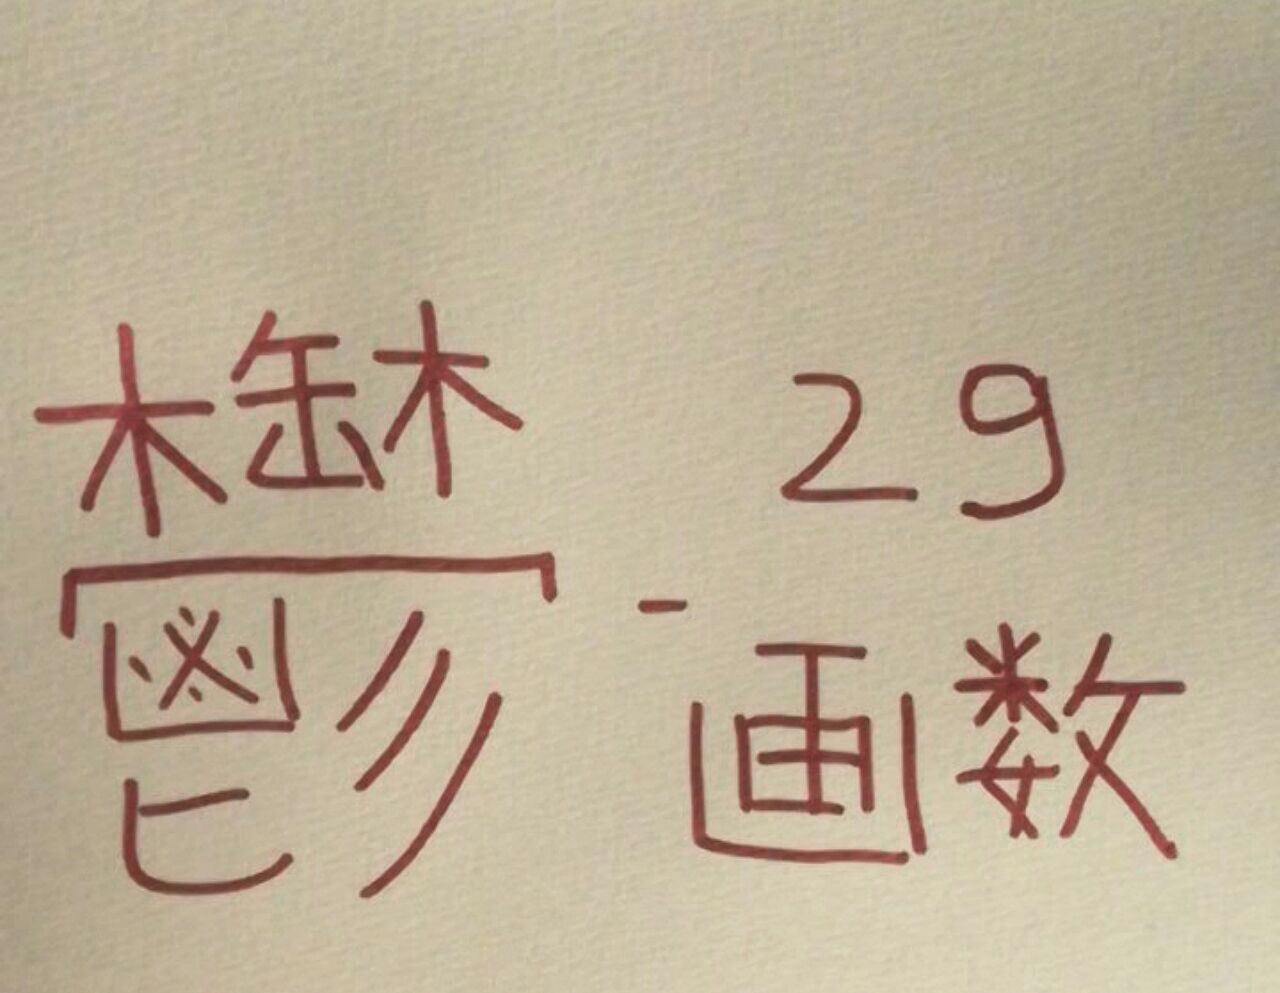 鬱 - 29
画数